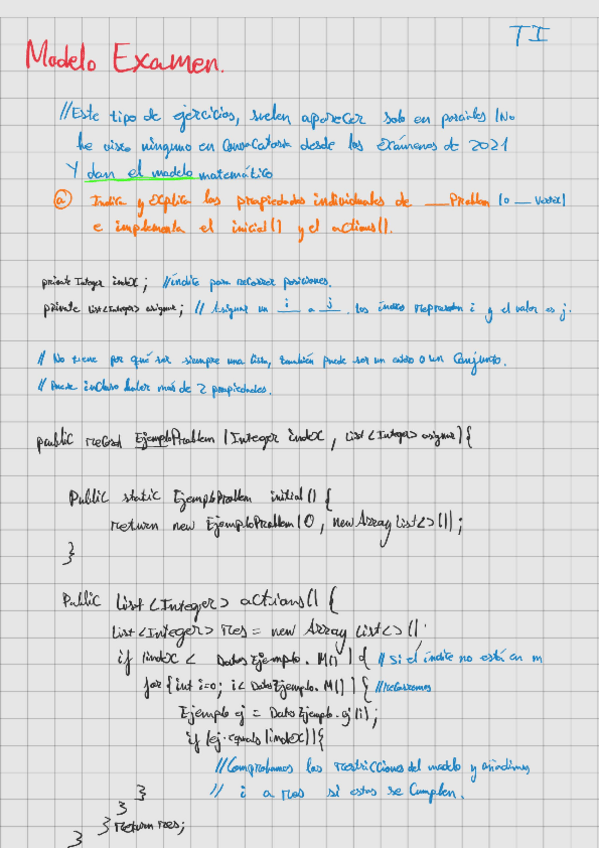 TI
Modelo Examen.
//Este tipo de ejercicios, suelen aparecer solo en parciales (No
he visto ninguno en Convocatoria desde los exámenes de 2021
Y dan el modelo matemático
a) Indica y explica las propiedades individuales de ___Problem (o ___Vertex)
e implementa el initial() y el actions().
private Integer index; //índice para recorrer posiciones.
private List<Integer> asignar; // Asignar un i a j. los índices representan i y el valor es j.
// No tiene por qué ser siempre una lista, también puede ser un entero o un Conjunto.
// Puede incluso haber más de 2 propiedades.
public record EjemploProblem (Integer index, List<Integer> asignar){
Public static EjemploProblem initial() {
return new EjemploProblem(0, new ArrayList<>());
}
Public List<Integer> actions() {
List<Integer> res = new ArrayList<>();
if (index < DatosEjemplo.M()) { // Si el índice no está en m
for (int i=0; i< DatoEjemplo.M()) { //recorremos
Ejemplo ej = DatoEjemplo.ej(i);
if (ej.equals(index)){
//Comprobamos las restricciones del modelo y añadimos
} // i a res si estas se Cumplen.
}
} return res;
}